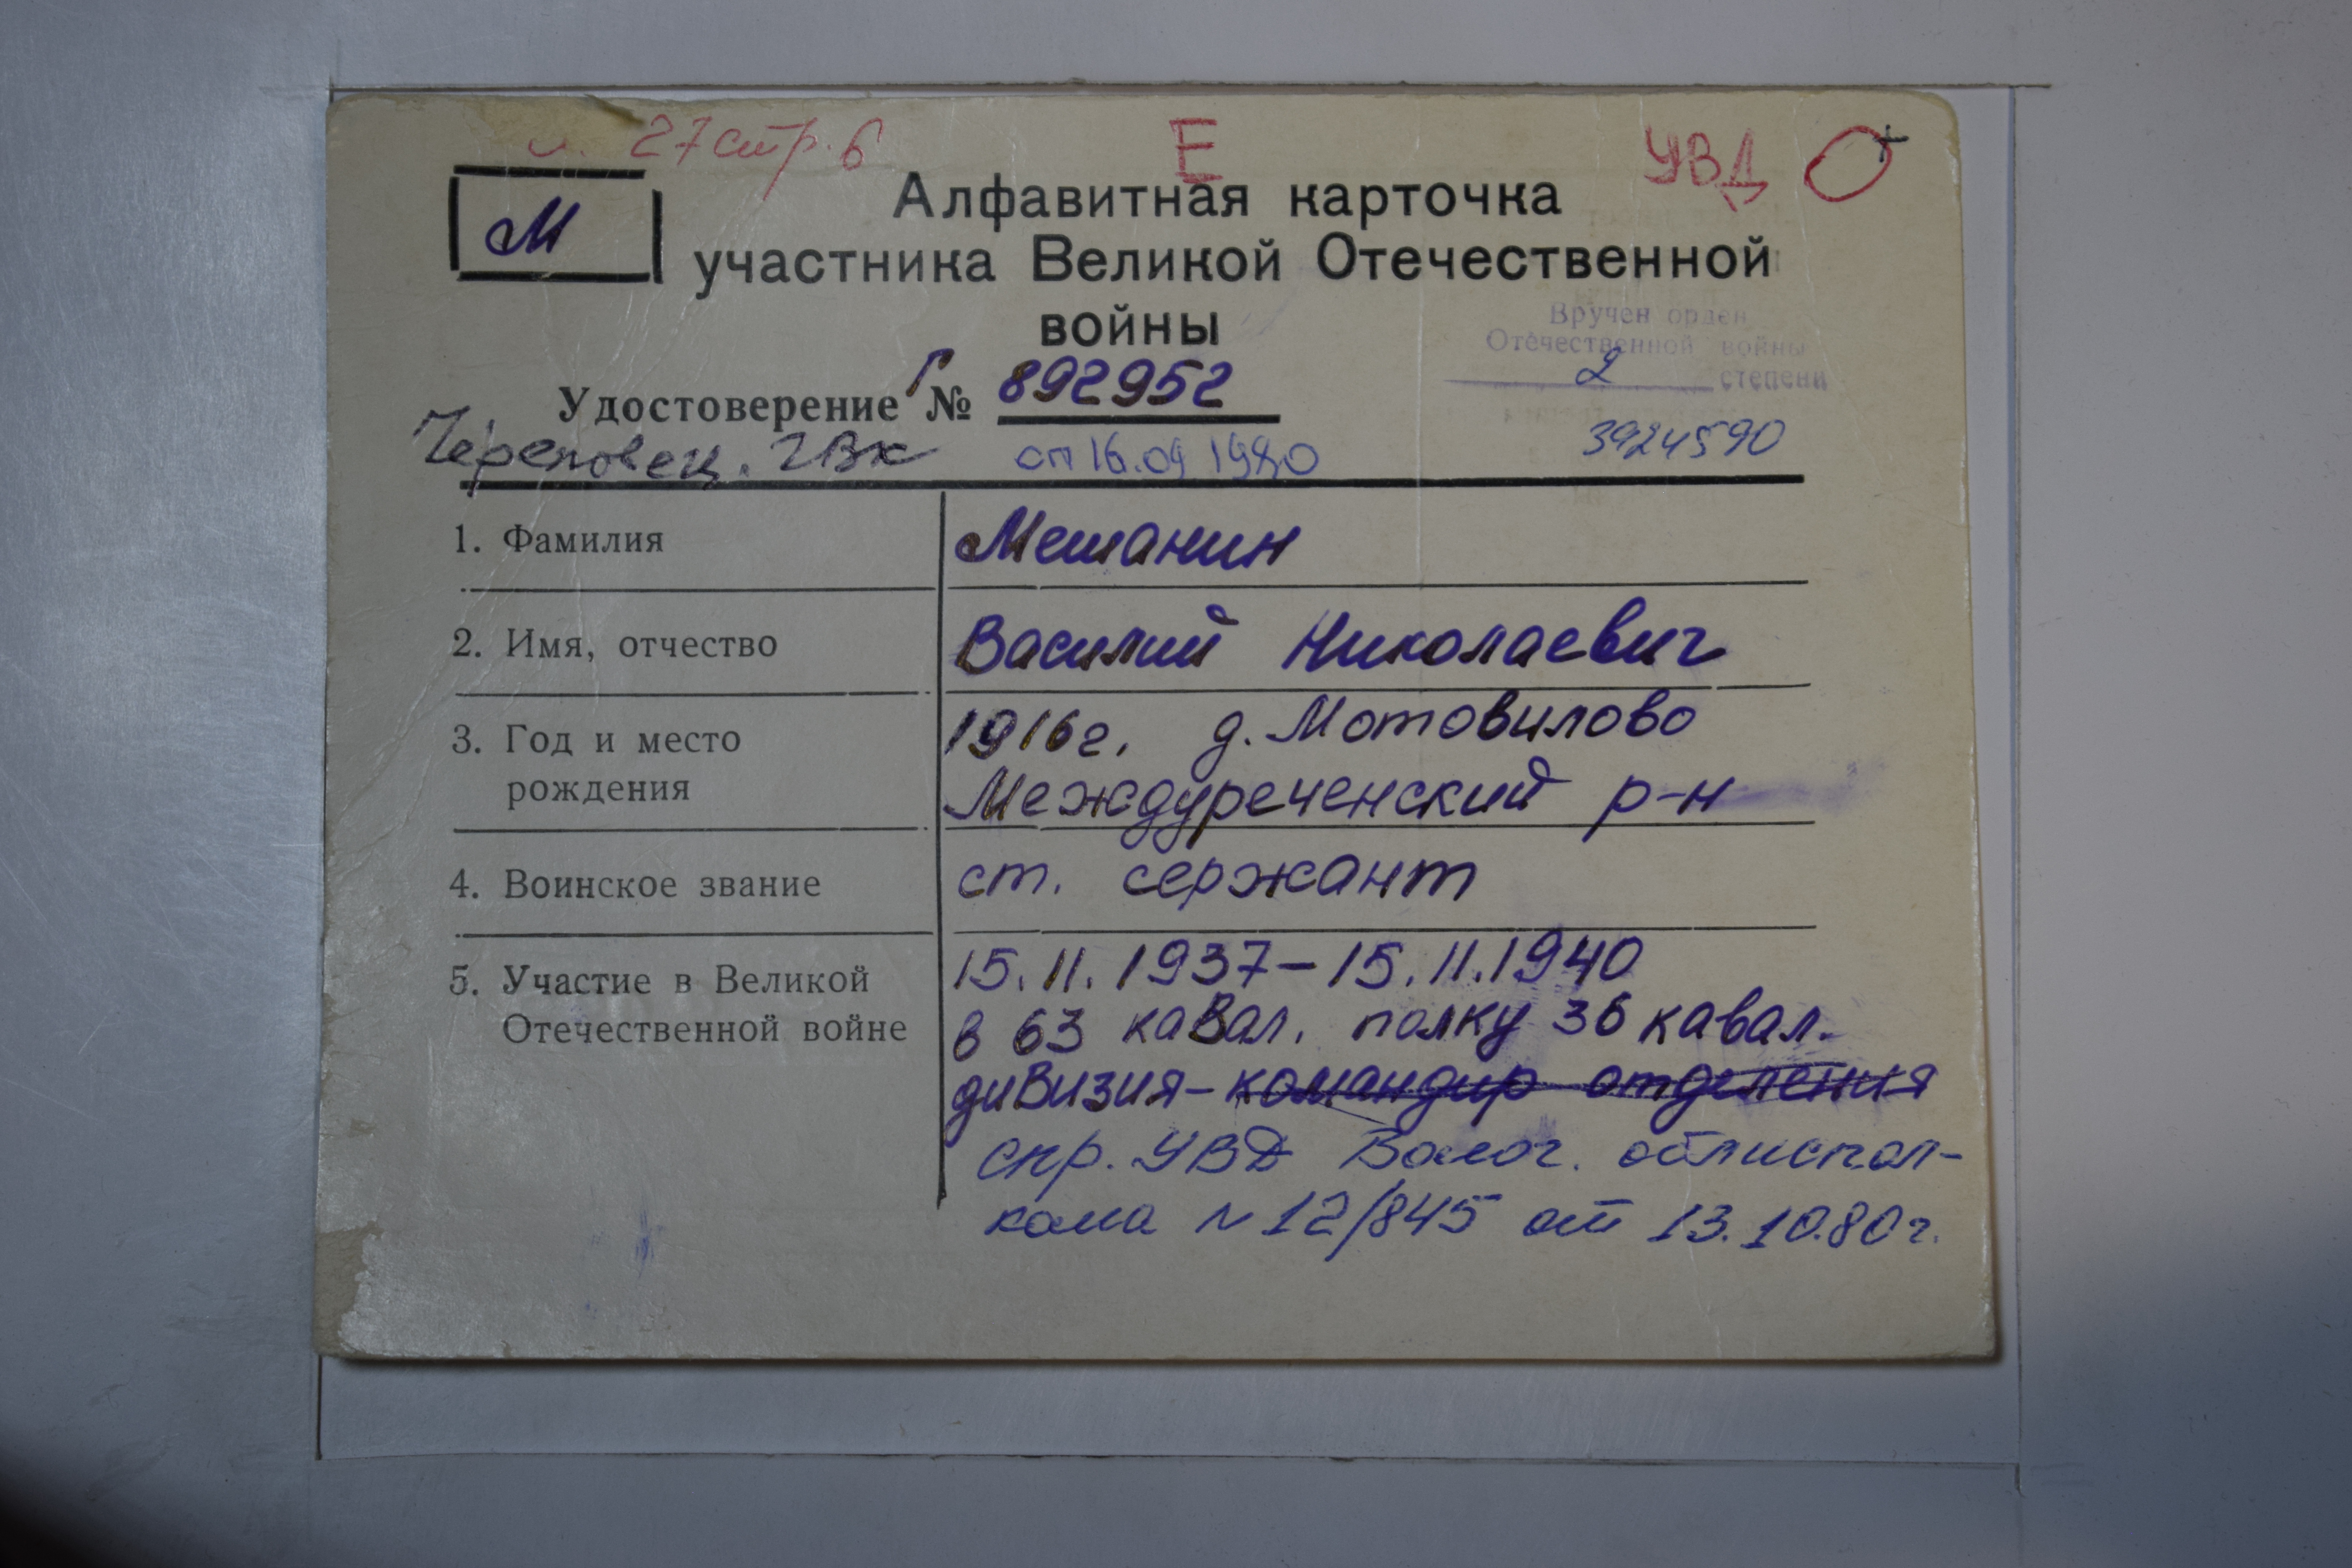 27 стр. 6
Е
УВД
М
Алфавитная карточка
участника Великой Отечественной
войны
Вручен орден
Отечественной войны
2 степени
3924590
Удостоверение Г № 892952
Череповец. ГВК от 16.09 1980
1. Фамилия Мешанин
2. Имя, отчество Василий Николаевич
3. Год и место 1916г. д. Мотовилово
рождения Междуреченский р-н
4. Воинское звание ст. сержант
5. Участие в Великой 15.11.1937-15.11.1940
Отечественной войне в 63 кавал. полку 36 кавал.
дивизия-командир отделения
спр. УВД Волог. облиспол-
кома N 12/845 от 13.10.80г.